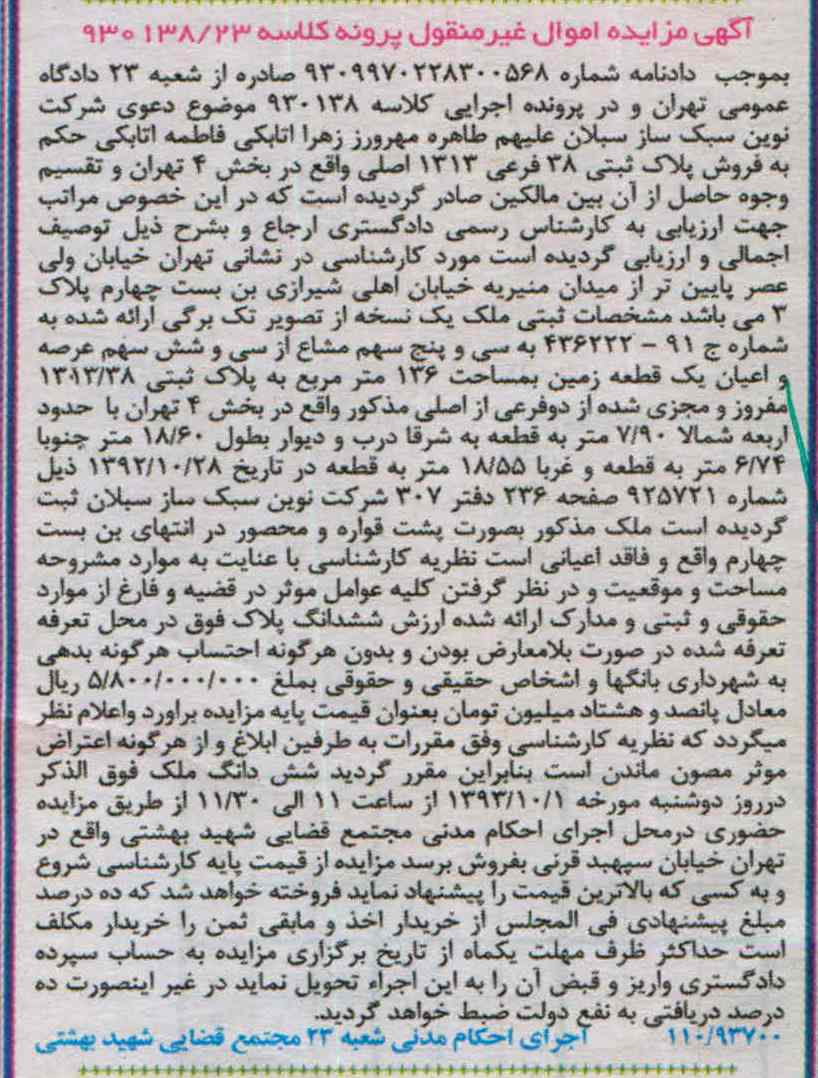 آگهی مزایده اموال غیرمنقول پرونه کلاسه ۹۳۰۱۳۸/۲۳
بموجب دادنامه شماره ۹۳۰۹۹۷۰۲۲۸۳۰۰۵۶۸ صادره از شعبه ۲۳ دادگاه
عمومی تهران و در پرونده اجرایی کلاسه ۹۳۰۱۳۸ موضوع دعوی شرکت
نوین سبک ساز سبلان علیهم طاهره مهرورز زهرا اتابکی فاطمه اتابکی حکم
به فروش پلاک ثبتی ۳۸ فرعی ۱۳۱۳ اصلی واقع در بخش ۴ تهران و تقسیم
وجوه حاصل از آن بین مالکین صادر گردیده است که در این خصوص مراتب
جهت ارزیابی به کارشناس رسمی دادگستری ارجاع و بشرح ذیل توصیف
اجمالی و ارزیابی گردیده است مورد کارشناسی در نشانی تهران خیابان ولی
عصر پایین تر از میدان منیریه خیابان اهلی شیرازی بن بست چهارم پلاک
۳ می باشد مشخصات ثبتی ملک یک نسخه از تصویر تک برگی ارائه شده به
شماره ج ۹۱ – ۴۳۶۲۲۲ به سی و پنج سهم مشاع از سی و شش سهم عرصه
و اعیان یک قطعه زمین بمساحت ۱۳۶ متر مربع به پلاک ثبتی ۱۳۱۳/۳۸
مفروز و مجزی شده از دوفرعی از اصلی مذکور واقع در بخش ۴ تهران با حدود
اربعه شمالا ۷/۹۰ متر به قطعه به شرقا درب و دیوار بطول ۱۸/۶۰ متر جنوبا
۶/۷۴ متر به قطعه و غربا ۱۸/۵۵ متر به قطعه در تاریخ ۱۳۹۲/۱۰/۲۸ ذیل
شماره ۹۲۵۷۲۱ صفحه ۲۳۶ دفتر ۳۰۷ شرکت نوین سبک ساز سبلان ثبت
گردیده است ملک مذکور بصورت پشت قواره و محصور در انتهای بن بست
چهارم واقع و فاقد اعیانی است نظریه کارشناسی با عنایت به موارد مشروحه
مساحت و موقعیت و در نظر گرفتن کلیه عوامل موثر در قضیه و فارغ از موارد
حقوقی و ثبتی و مدارک ارائه شده ارزش ششدانگ پلاک فوق در محل تعرفه
تعرفه شده در صورت بلامعارض بودن و بدون هرگونه احتساب هرگونه بدهی
به شهرداری بانگها و اشخاص حقیقی و حقوقی بمبلغ ۵/۸۰۰/۰۰۰/۰۰۰ ریال
معادل پانصد و هشتاد میلیون تومان بعنوان قیمت پایه مزایده براورد واعلام نظر
میگردد که نظریه کارشناسی وفق مقررات به طرفین ابلاغ و از هرگونه اعتراض
موثر مصون ماندن است بنابراین مقرر گردید شش دانگ ملک فوق الذکر
درروز دوشنبه مورخه ۱۳۹۳/۱۰/۱ از ساعت ۱۱ الی ۱۱/۳۰ از طریق مزایده
حضوری درمحل اجرای احکام مدنی مجتمع قضایی شهید بهشتی واقع در
تهران خیابان سپهبد قرنی بفروش برسد مزایده از قیمت پایه کارشناسی شروع
و به کسی که بالاترین قیمت را پیشنهاد نماید فروخته خواهد شد که ده درصد
مبلغ پیشنهادی فی المجلس از خریدار اخذ و مابقی ثمن را خریدار مکلف
است حداکثر ظرف مهلت یکماه از تاریخ برگزاری مزایده به حساب سپرده
دادگستری واریز و قبض آن را به این اجراء تحویل نماید در غیر اینصورت ده
درصد دریافتی به نفع دولت ضبط خواهد گردید.
۱۱۰/۹۳۷۰۰ اجرای احکام مدنی شعبه ۲۳ مجتمع قضایی شهید بهشتی